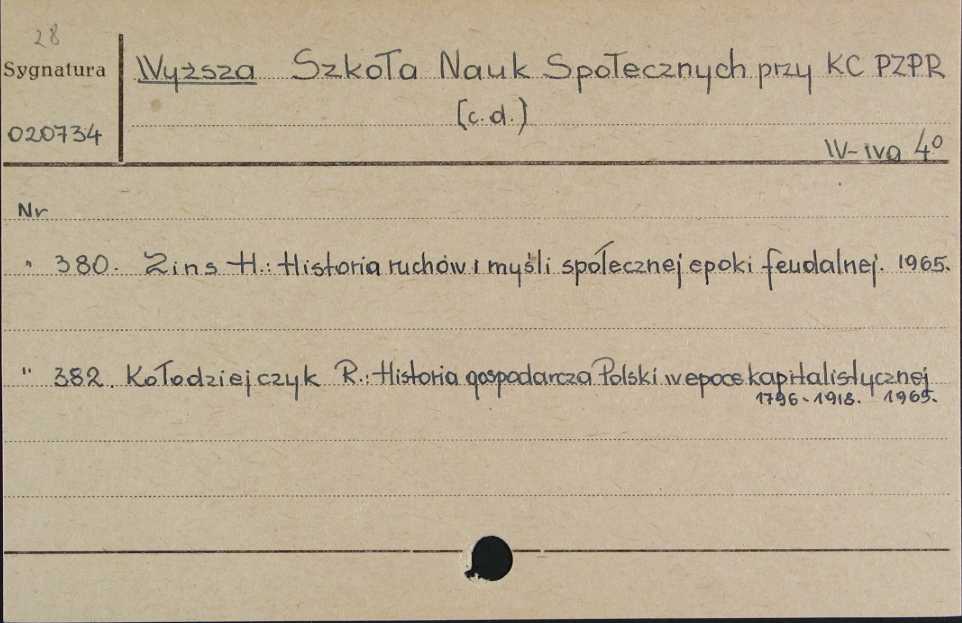 28
Sygnatura
Wyższa Szkoła Nauk Społecznych przy KC PZPR
(c.d.)
020734
W-wa 4°
Nr
" 380. Zins H.: Historia ruchów i myśli społecznej epoki feudalnej. 1965.
" 382. Kołodziejczyk R.: Historia gospodarcza Polski w epoce kapitalistycznej
1796-1918. 1965.